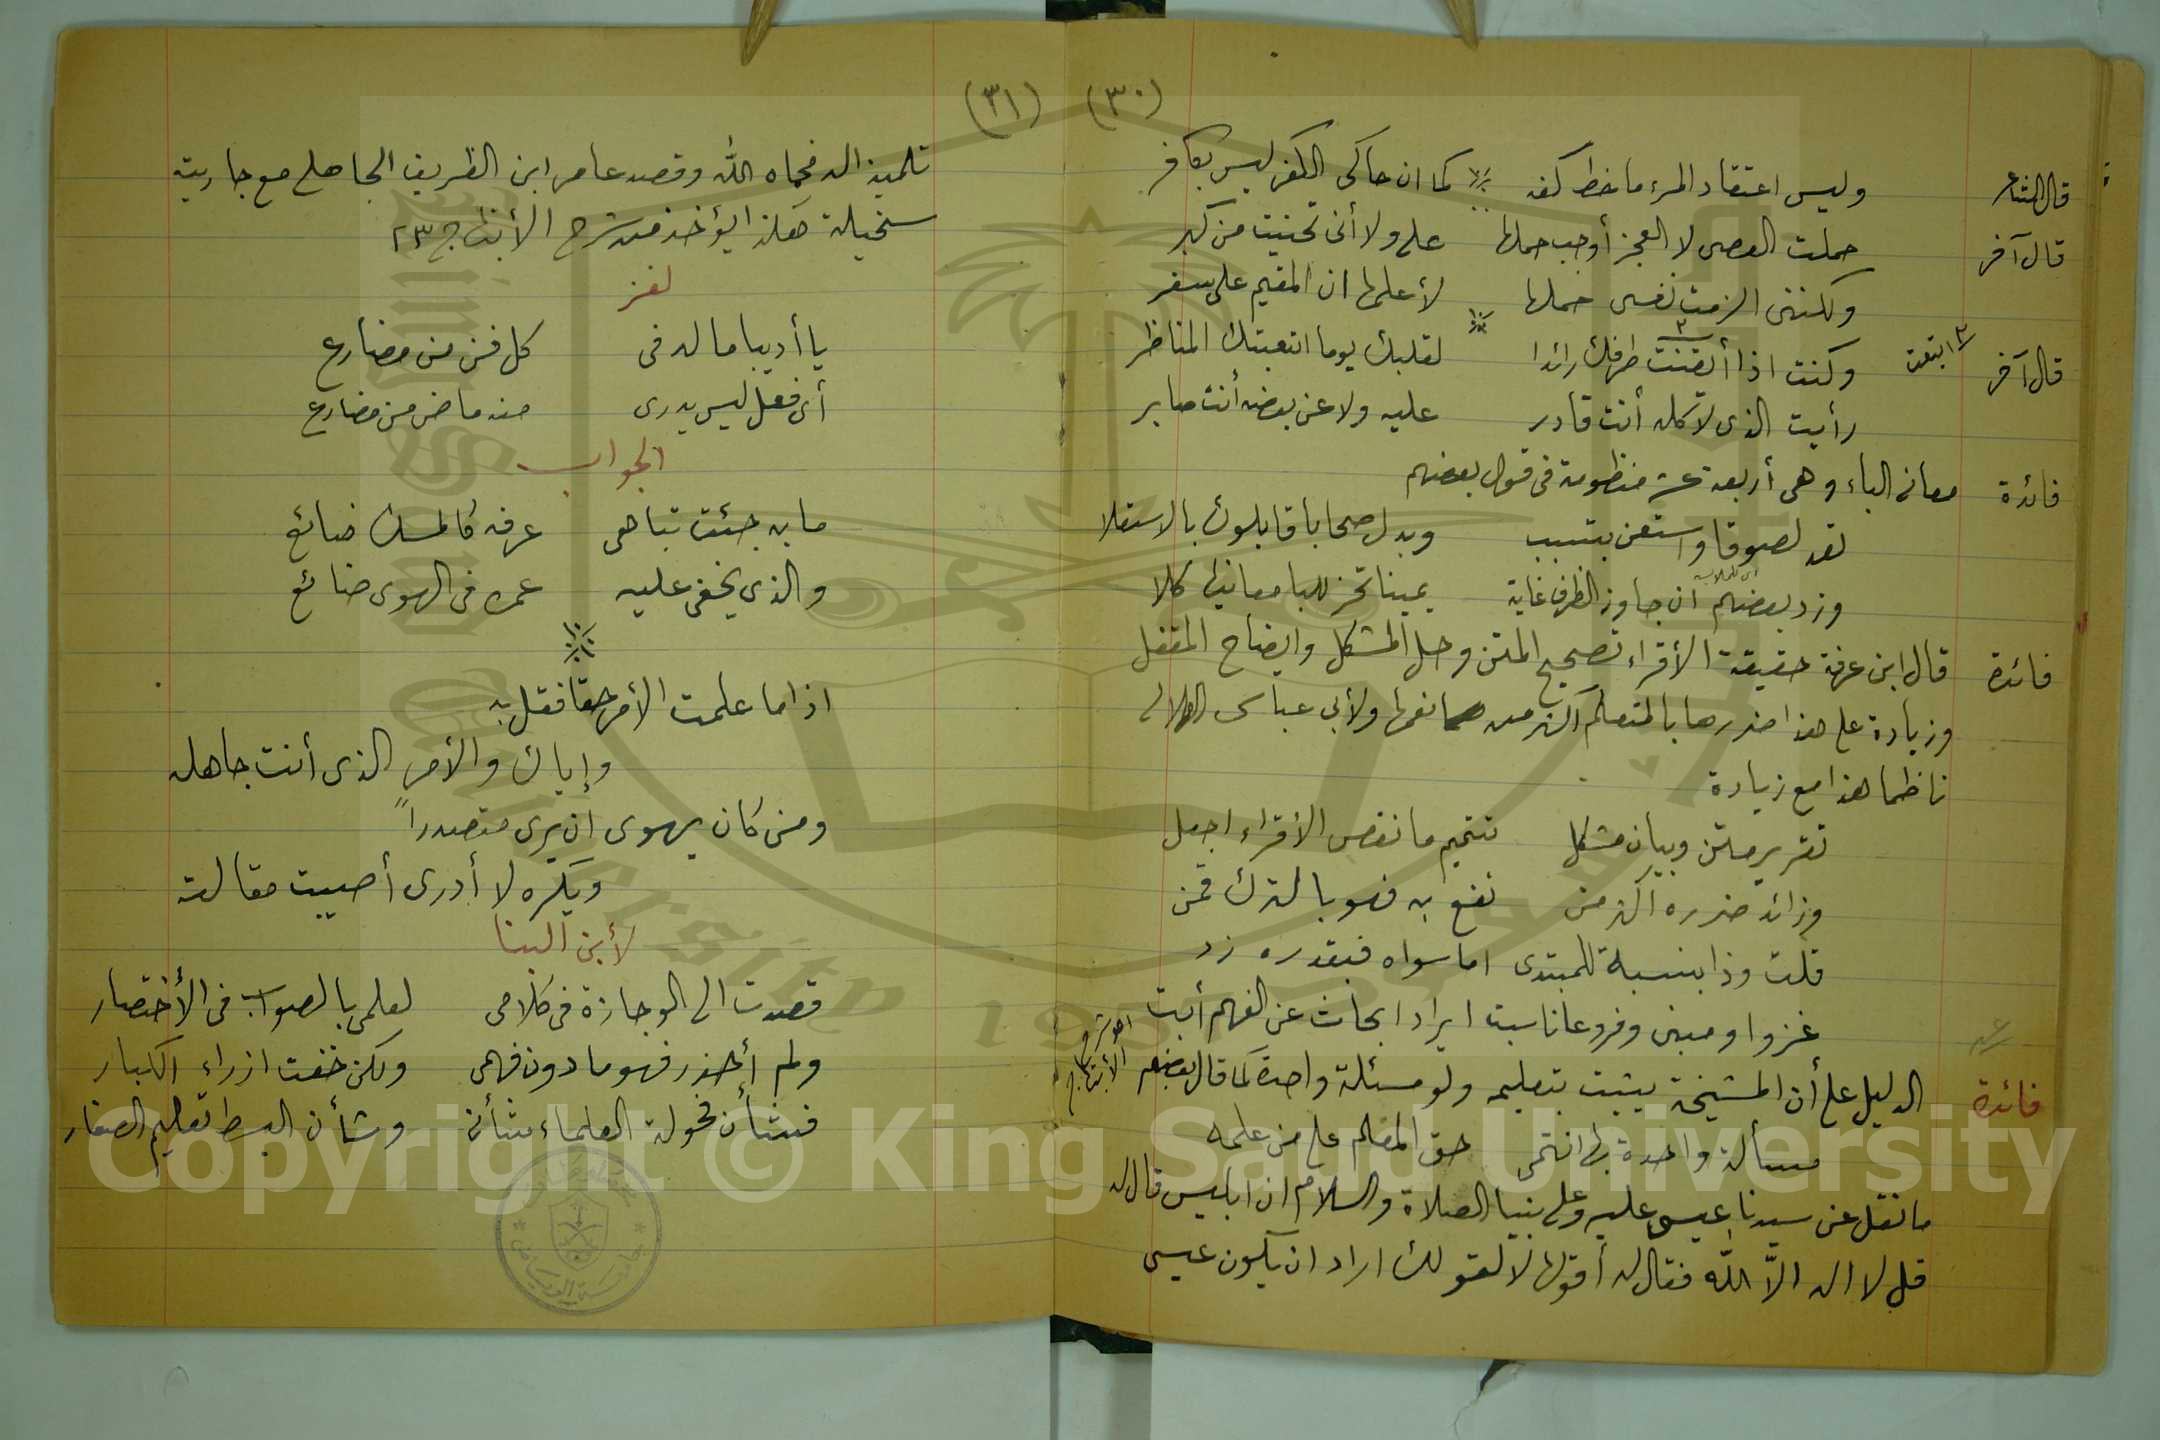 (٣٠)
قال الشاعر وليس اعتقاد المرء ما خط كفه كما ان حاكى الكفر ليس بكافر
قال آخر حملت العصى لا العجز أوجب حملها على ولا أنى تحنيت من كبر
ولكننى الزمت نفسى حملها لأعلمها ان المقيم على سفر
قال آخر وكنت اذا أتقنت طرفك رائدا لقلبك يوما اتعبتك المناظر
٣ ابتعت
رأيت الذى لا كله أنت قادر عليه ولا عن بعضه أنت صابر
فائدة معانى الباء وهى أربعة عشر منظومة فى قول بعضهم
تعد لصوقا واستعن بتسبب وبدل صحابا قابلوك بالاستعلا
وزد بعضهم ان جاوز الظرف غاية يمينا تحز للبا معانيها كلا
فائدة قال ابن عرفة حقيقة الأقراء تصحيح المتن وحل المشكل وايضاح المقفل
وزيادة على هذا ضررها بالمتعلم اكثر من نفعها ولأبى عباس الهلالى
ناظما هذا مع زيادة
تقرير متن وبيان مشكل تتميم ما نقص الأقراء اجعل
وزائد ضرره اكثر من نفع به فهو بالترك قمن
قلت وذا بنسبة للمبتدى اما سواه فبقدره زد
غزوا ومبنى وفروعا ناسبت ايراد ابحاث عن الفهم أبت
فائدة الدليل على أن المشيخة يثبت بتعليم ولو مسئلة واحدة كما قال بعضهم
مسألة واحدة بها انتمى حق المعلم على من علمه
ما نقل عن سيدنا عيسى عليه وعلى نبينا الصلاة والسلام ان ابليس قال له
قل لا اله الاّ الله فقال له أقولها لا لقولك اراد ان يكون عيسى
(٣١)
تلميذا له فحماه الله وقصد عامر ابن الظريف الجاهل مع جاريته
سخيلة هكذا يؤخذ من شرح الأبتهاج ٢٣
لغز
يا أديبا ما له فى كل فن من مضارع
أى فعل ليس يدرى منه ماض من مضارع
الجواب
ما به جئت تباهى عرفه كالمسك ضائع
والذى يخفى عليه عمره فى الهوى ضائع
اذا ما علمت الأمر حقا فقل به
وإياك والأمر الذى أنت جاهله
ومن كان يهوى ان يرى متصدراً
ويكره لا أدرى أصيبت مقالته
لأبن البنا
قصدت الى الوجازة فى كلامى لعلمى بالصواب فى الأختصار
ولم أحذر فهوما دون فهمى ولكن خفت ازراء الكبار
فشأن فحولة العلماء شأنى وشأن البسط تعليم الصغار
Copyright © King Saud University
King Saud University
1957
جامعة الرياض